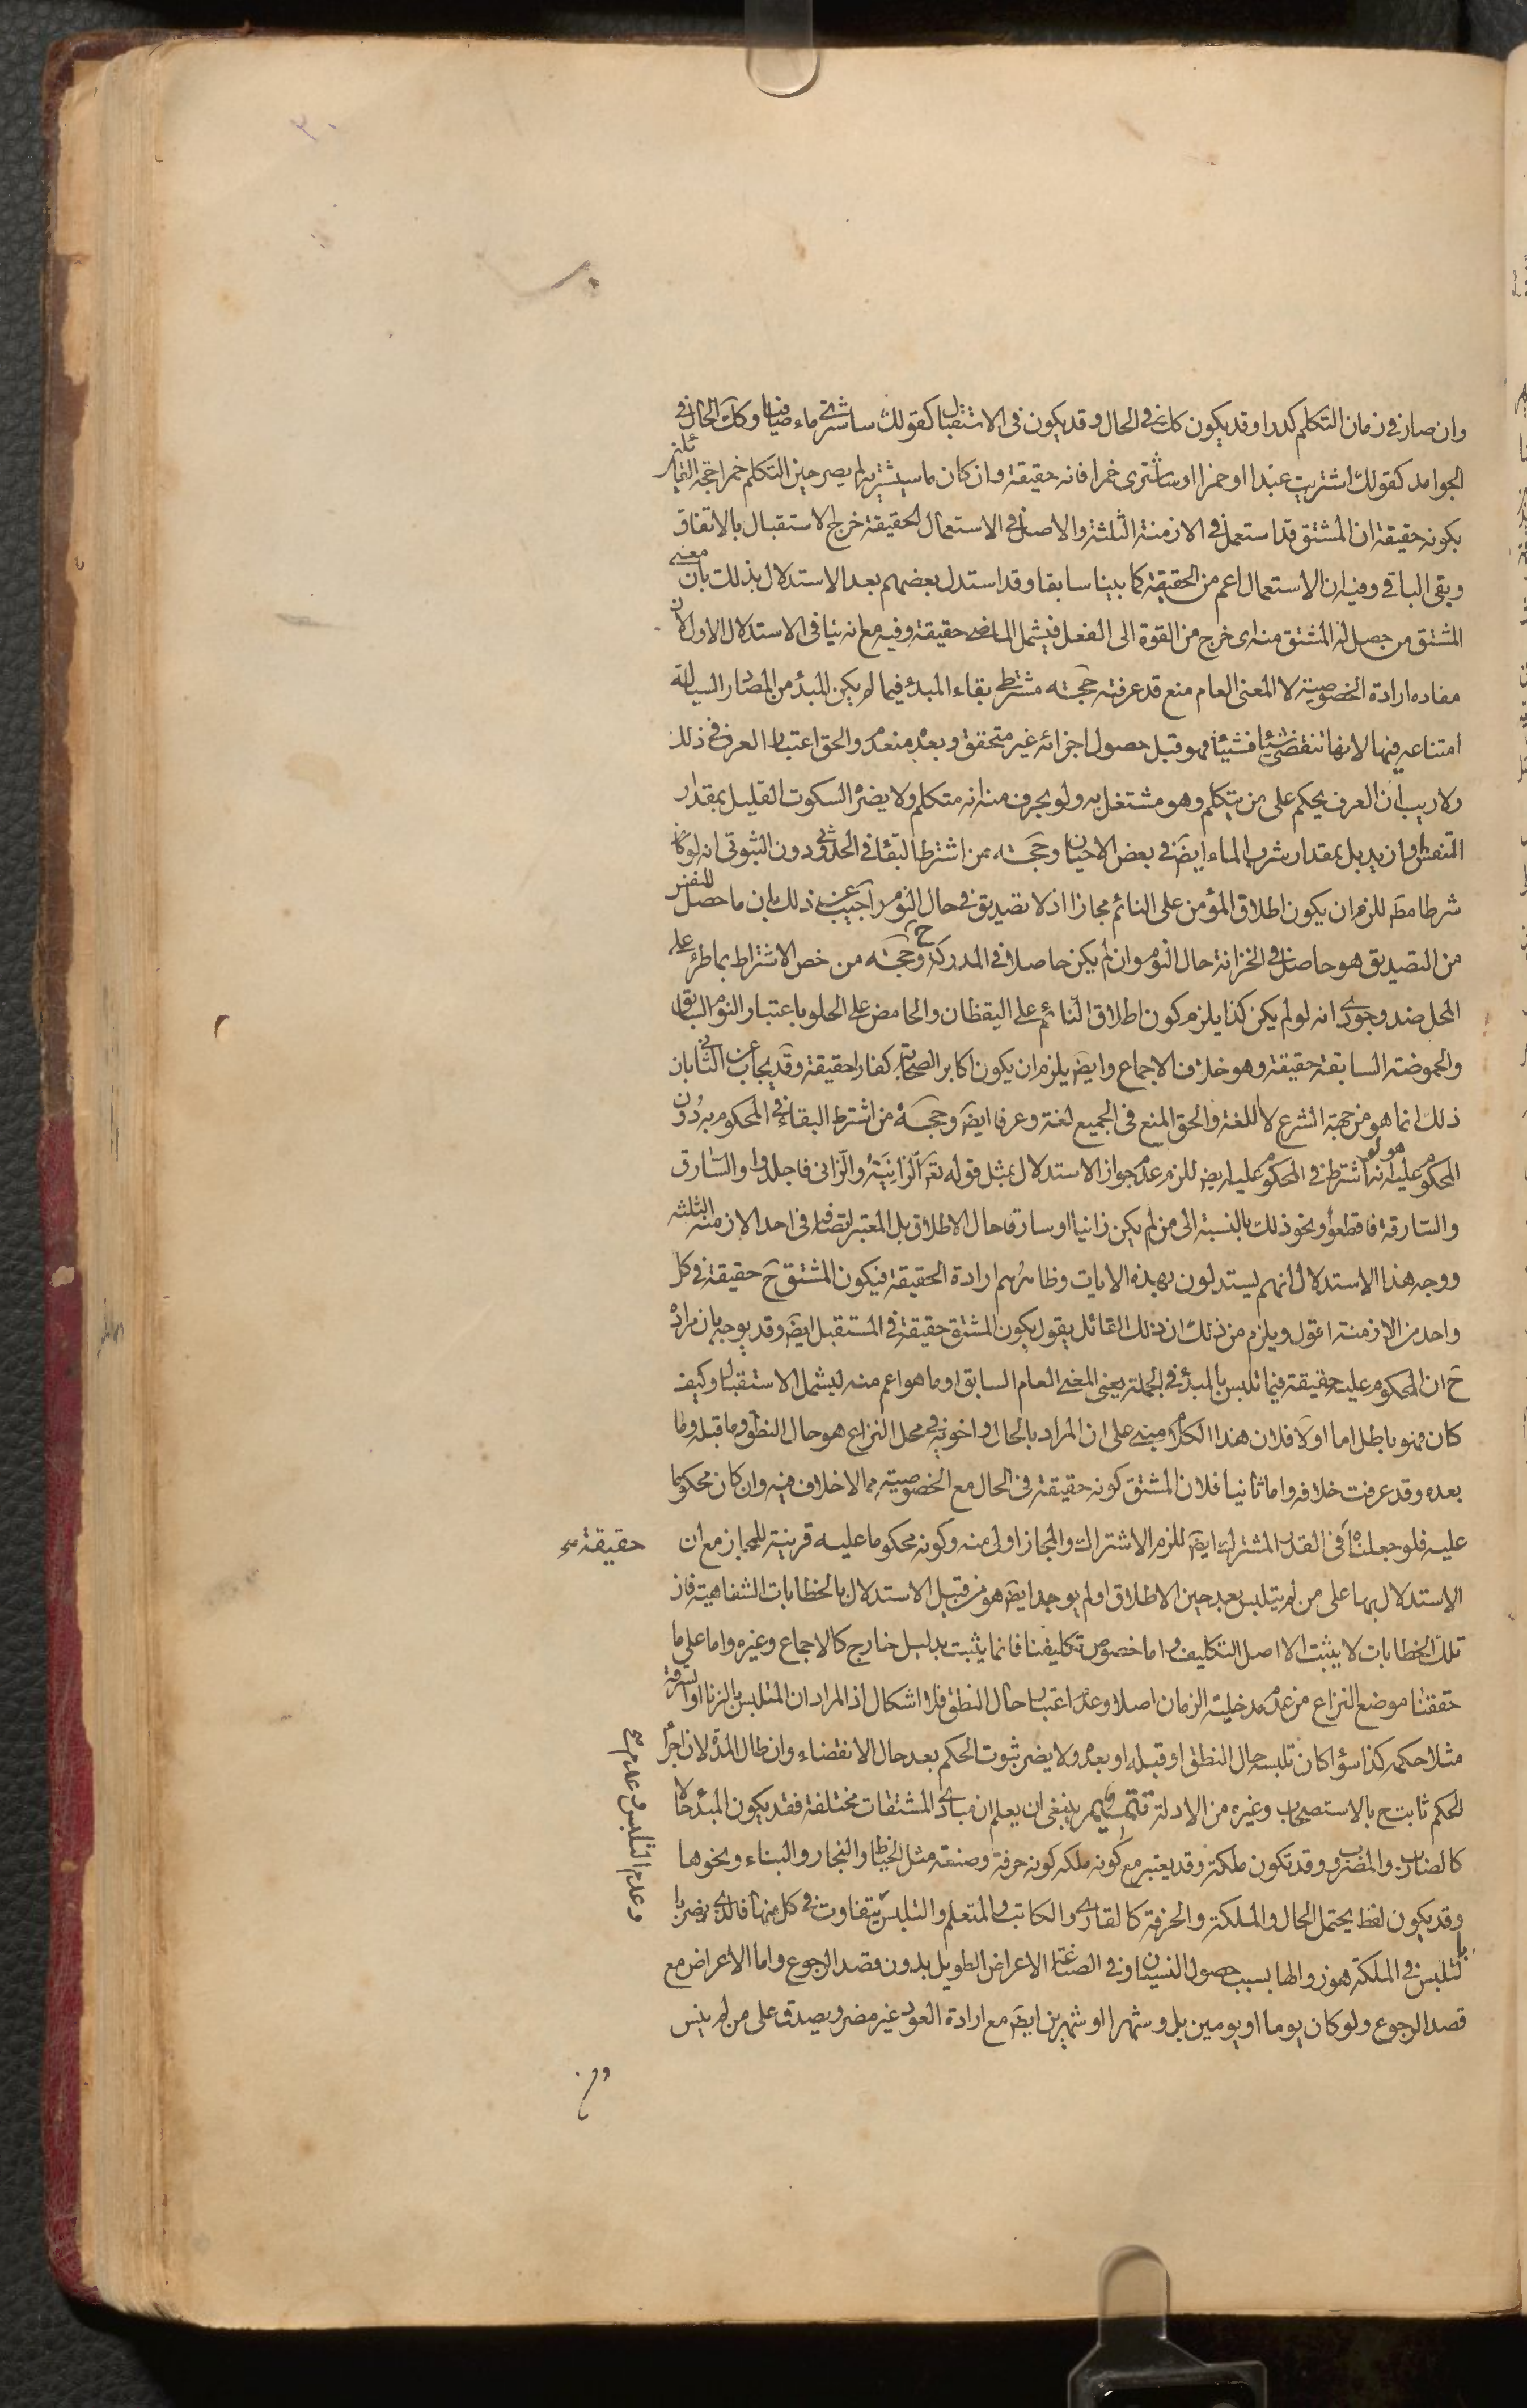 وان صار فى زمان التكلم كدرا وقد يكون كائنا فى الحال وقد يكون فى الاستقبال كقولك ساشترى ماء صافيا وكك الحال فى
الجوامد كقولك اشتريت عبدا او خمرا او ساشترى خمرا فانه حقيقة وان كان ما سيشتريه لم يصر حين التكلم خمرا حجة القائلين
بكونه حقيقة ان المشتق قد استعمل فى الازمنة الثلثة والاصل فى الاستعمال الحقيقة خرج الاستقبال بالاتفاق
وبقى الباقى وفيه ان الاستعمال اعم من الحقيقة كما بينا سابقا وقد استدل بعضهم بعد الاستدلال بذلك بان معنى
المشتق من حصل له المشتق منه اى خرج من القوة الى الفعل فيشمل الماضى حقيقة وفيه مع انه ينافى الاستدلال الاول لان
مفاده ارادة الخصوصية لا المعنى العام منع قد عرفته حجة مشترطى بقاء المبدء فيما لم يكن المبدء من المصادر السيالة
امتناعه فيها لانها تنقضى شيئا فشيئا فهو قبل حصول اجزائه غير متحقق وبعده منعدم والحق اعتبار العرف فى ذلك
ولا ريب ان العرف يحكم على من يتكلم وهو مشتغل به ولو بحرف منه انه متكلم ولا يضره السكوت القليل بمقدار
التنفس وازيد بل بمقدار شرب الماء ايض فى بعض الاحيان وحجة من اشترط البقاء فى الحدوثى دون الثبوتى انه لو كان
شرطا مط للزم ان يكون اطلاق المؤمن على النائم مجازا اذ لا تصديق فى حال النوم واجيب عن ذلك بان ما حصل للنفس
من التصديق هو حاصل فى الخزانة حال النوم وان لم يكن حاصلا فى المدركة ح وحجة من خص الاشتراط بما طرء على
المحل ضد وجودى انه لو لم يكن كذا يلزم كون اطلاق النائم على اليقظان والحامض على الحلو باعتبار النوم السابق
والحموضة السابقة حقيقة وهو خلاف الاجماع وايض يلزم ان يكون اكابر الصحابة كفارا حقيقة وقد يجاب عن الثانى بان
ذلك انما هو من جهة الشرع لا اللغة والحق المنع فى الجميع لغة وعرفا ايض وحجة من اشترط البقاء فى المحكوم به دون
المحكوم عليه هو انه لو اشترط فى المحكوم عليه ايض للزم عدم جواز الاستدلال بمثل قوله تعه الزانية والزانى فاجلدوا والسارق
والسارقة فاقطعوا ونحو ذلك بالنسبة الى من لم يكن زانيا او سارقا حال الاطلاق بل المعتبر اتصافه فى احد الازمنة الثلثة
ووجه هذا الاستدلال انهم يستدلون بهذه الايات وظاهرهم ارادة الحقيقة فيكون المشتق ح حقيقة فى كل
واحد من الازمنة اقول ويلزم من ذلك ان ذلك القائل يقول بكون المشتق حقيقة فى المستقبل ايض وقد يوجه بان مراده
ح ان المحكوم عليه حقيقة فيما تلبس بالمبدء فى الجملة يعنى المعنى العام السابق او ما هو اعم منه ليشمل الاستقبال وكيف
كان فهو باطل اما اولا فلان هذا الكلام مبنى على ان المراد بالحال واخويه فى محل النزاع هو حال النطق وما قبله وما
بعده وقد عرفت خلافه واما ثانيا فلان المشتق كونه حقيقة فى الحال مع الخصوصية مما لا خلاف فيه وان كان محكوما
عليه فلو جعلناه فى القدر المشترك ايض للزم الاشتراك والمجاز اولى منه وكونه محكوما عليه قرينة للمجاز مع ان
حقيقة صح
الاستدلال بها على من لم يتلبس بعد حين الاطلاق او لم يوجد ايض هو من قبيل الاستدلال بالخطابات الشفاهية فان
تلك الخطابات لا يثبت الا اصل التكليف واما خصوص تكليفنا فانما يثبت بدليل خارج كالاجماع وغيره واما على ما
حققنا موضع النزاع من عدم مدخلية الزمان اصلا وعدم اعتبار حال النطق فلا اشكال اذ المراد ان المتلبس بالزنا او السرقة
مثلا حكمه كذا سواء كان تلبسه حال النطق او قبله او بعده ولا يضر ثبوت الحكم بعد حال الانقضاء وان طال المدة لان اجراء
وعدم التلبس وعدم صح
الحكم ثابت ح بالاستصحاب وغيره من الادلة تتميم ينبغى ان يعلم ان مبادى المشتقات مختلفة فقد يكون المبدء حالا
كالضارب والمضروب وقد تكون ملكة وقد يعتبر مع كونه ملكه كونه حرفة وصنعة مثل الخياط والنجار والبناء ونحوها
وقد يكون لفظ يحتمل الحال والملكة والحرفة كالقارى والكاتب والمتعلم والتلبس يتفاوت فى كل منها فالذى يضر با
لتلبس فى الملكة هو زوالها بسبب حصول النسيان وفى الصناعة الاعراض الطويل بدون قصد الرجوع واما الاعراض مع
قصد الرجوع ولو كان يوما او يومين بل وشهرا او شهرين ايض مع ارادة العود غير مضر ويصدق على من لم ينس